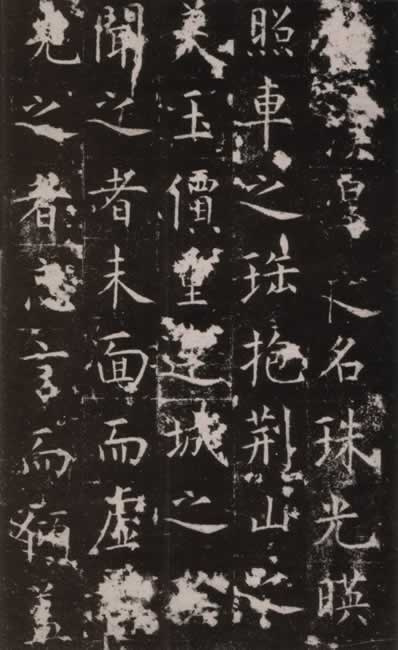 之名珠光暎
照車之珤抱荊山之
美玉價重連城之
聞之者未面而虛
見之者忘言而盖